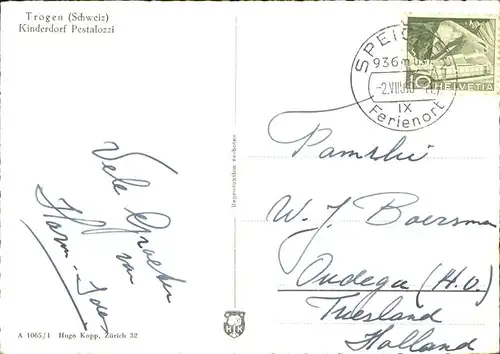 Trogen (Schweiz)
Kinderdorf Pestalozzi
936m
IX
Ferienort
10 HELVETIA
Reproduktion verboten
Vele Groeten
van
Harm-
W. J. Boersma
Oudega (H.O.)
Friesland
Holland
A 1065/1 Hugo Kopp, Zürich 32